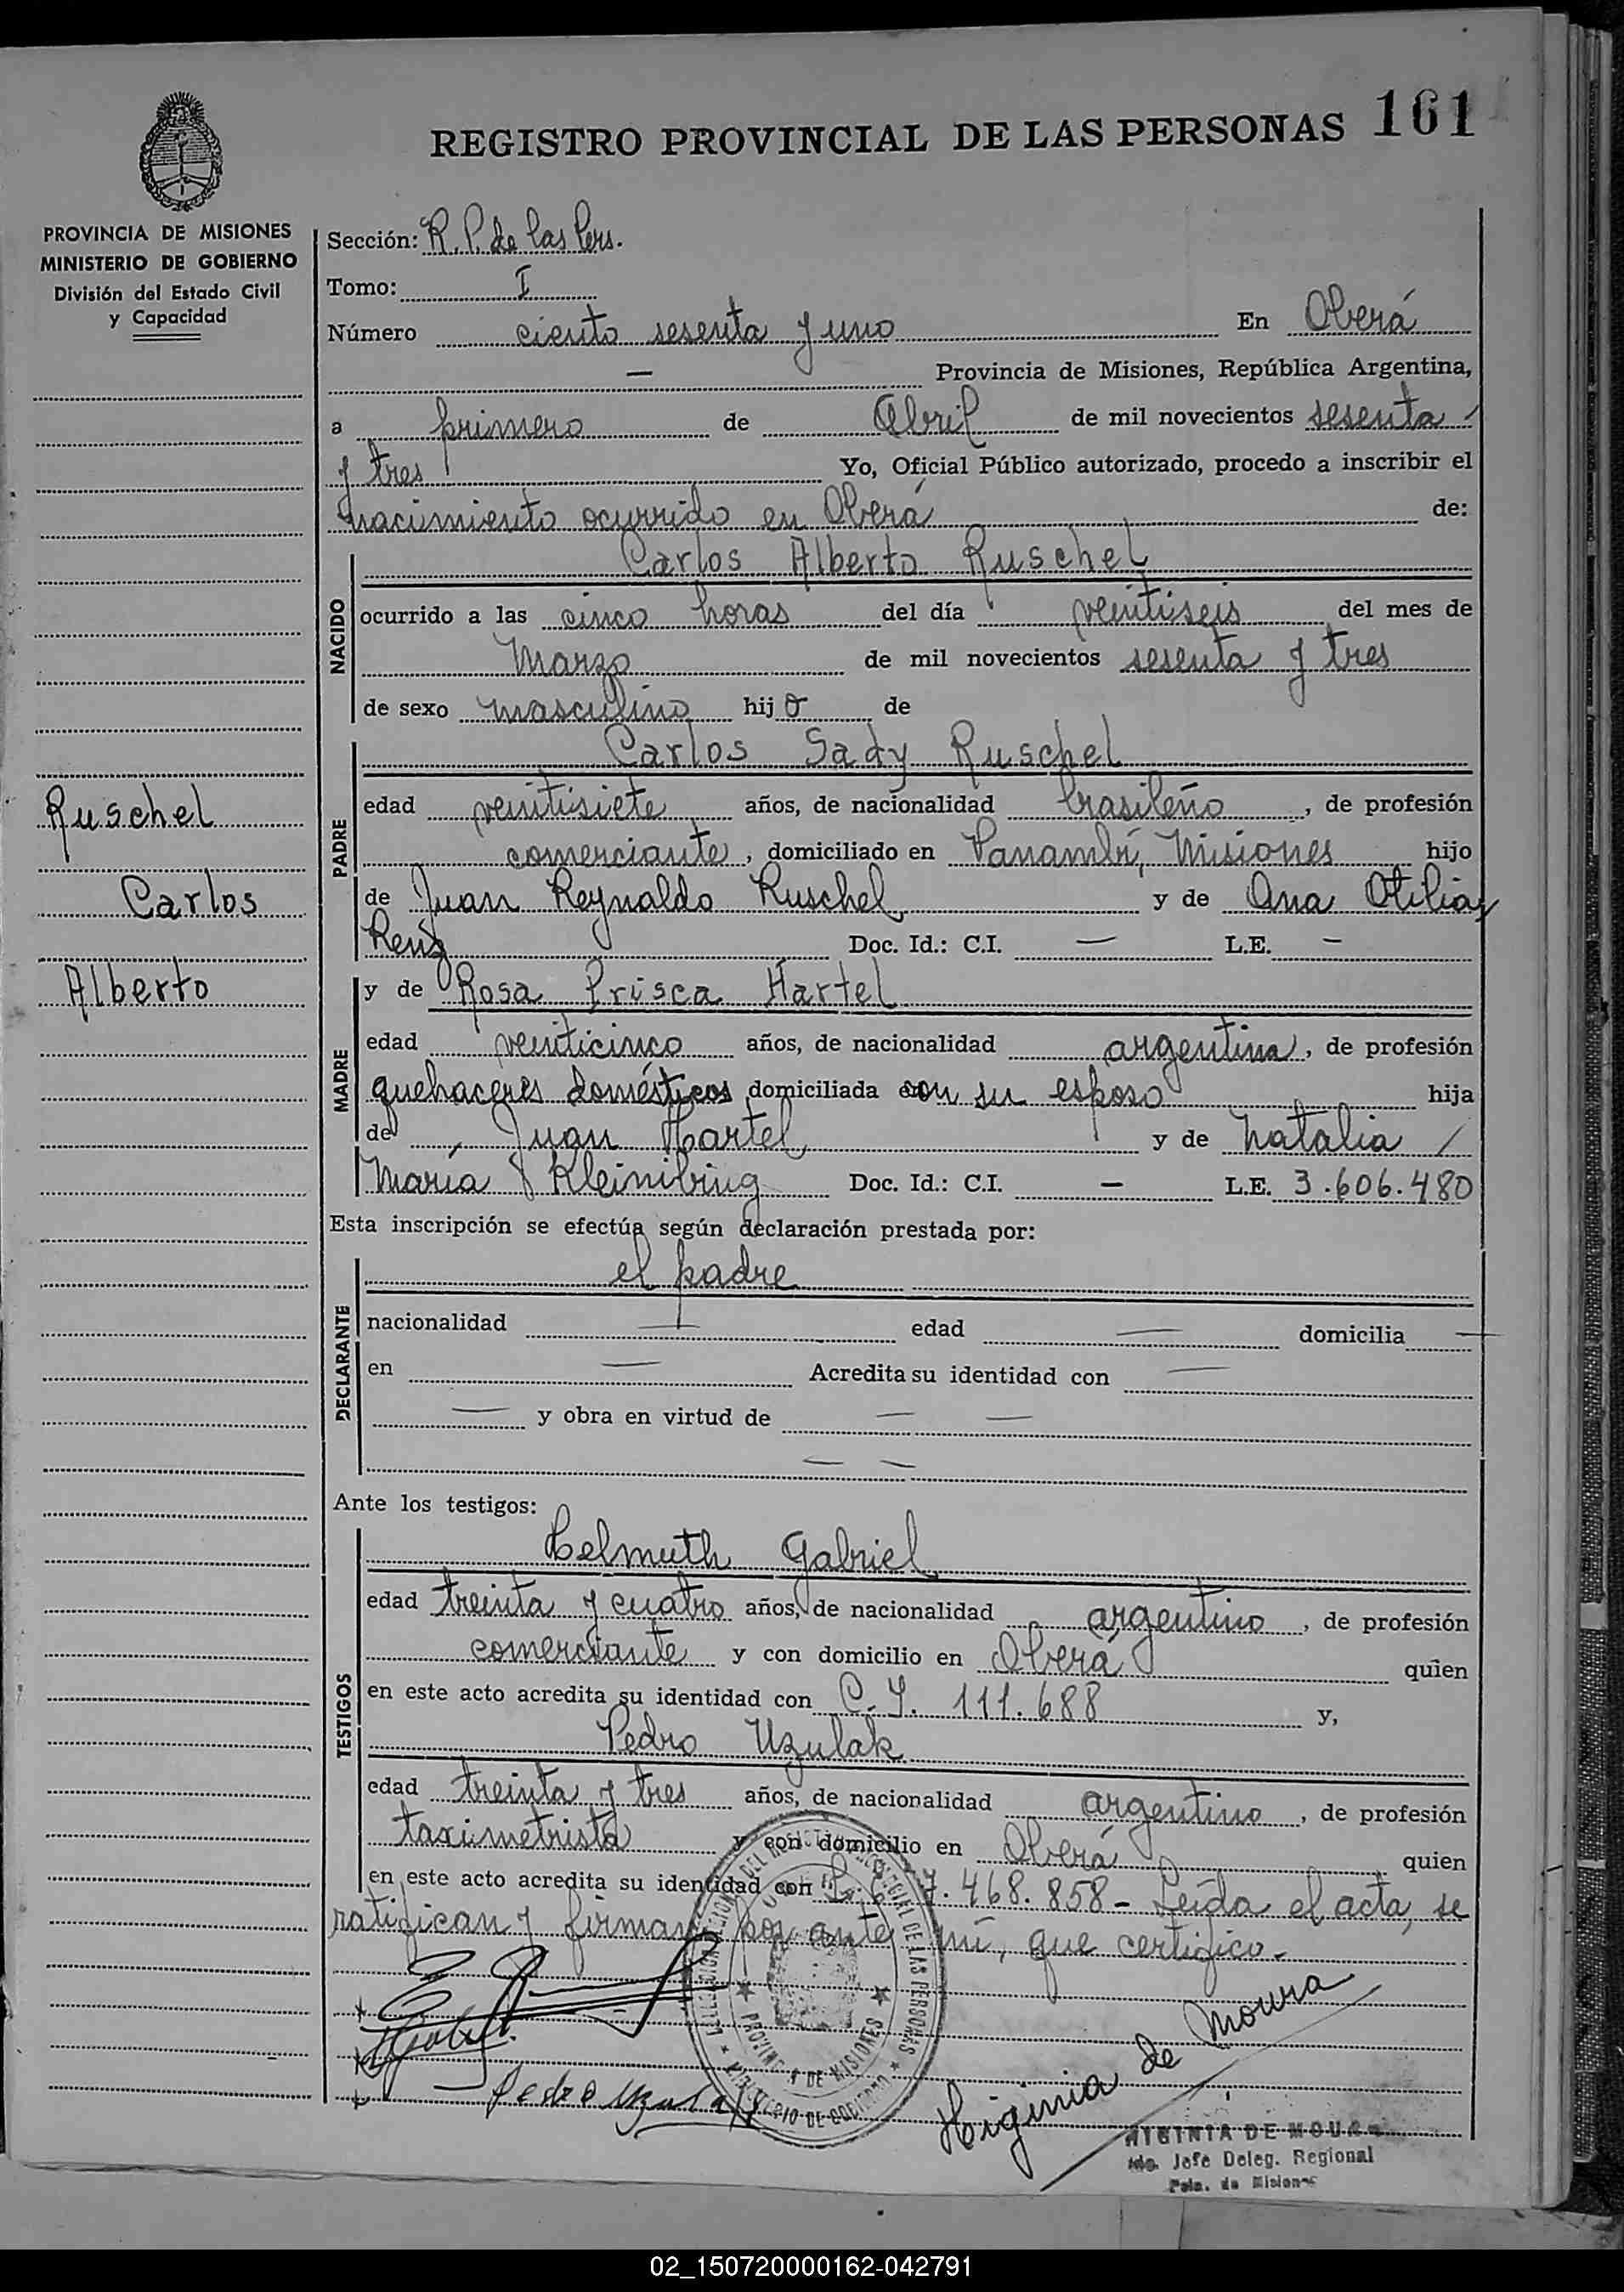 REGISTRO PROVINCIAL DE LAS PERSONAS 161
PROVINCIA DE MISIONES
MINISTERIO DE GOBIERNO
División del Estado Civil
y Capacidad
Ruschel
Carlos
Alberto
Sección: R. P. de las Pers.
Tomo: I
Número ciento sesenta y uno En Oberá
— Provincia de Misiones, República Argentina,
a primero de Abril de mil novecientos sesenta
y tres Yo, Oficial Público autorizado, procedo a inscribir el
nacimiento ocurrido en Oberá de:
NACIDO
Carlos Alberto Ruschel
ocurrido a las cinco horas del día veintiseis del mes de
Marzo de mil novecientos sesenta y tres
de sexo masculino hijo de
PADRE
Carlos Sady Ruschel
edad veintisiete años, de nacionalidad brasileño, de profesión
comerciante, domiciliado en Panambí, Misiones hijo
de Juan Reynaldo Ruschel y de Ana Otilia
Renz Doc. Id.: C.I. — L.E. —
MADRE
y de Rosa Prisca Hartel
edad veinticinco años, de nacionalidad argentina, de profesión
quehaceres domésticos domiciliada con su esposo hija
de Juan Hartel y de Natalia /
María Kleinibing Doc. Id.: C.I. — L.E. 3.606.480
Esta inscripción se efectúa según declaración prestada por:
DECLARANTE
el padre
nacionalidad — edad — domicilia —
en — Acredita su identidad con —
— y obra en virtud de — —
— —
Ante los testigos:
TESTIGOS
Helmuth Gabriel
edad treinta y cuatro años, de nacionalidad argentino, de profesión
comerciante y con domicilio en Oberá quien
en este acto acredita su identidad con C.I. 111.688 y,
Pedro Uzulak
edad treinta y tres años, de nacionalidad argentino, de profesión
taximetrista y con domicilio en Oberá quien
en este acto acredita su identidad con L. E. 7.468.858- Leída el acta, se
ratifican y firman por ante mí, que certifico.-
Pedro Uzulak
Higinia de Moura
HIGINIA DE MOURA
Jefe Deleg. Regional
Pcia. de Misiones
PROVINCIA DE MISIONES
MINISTERIO DE GOBIERNO
02_150720000162-042791